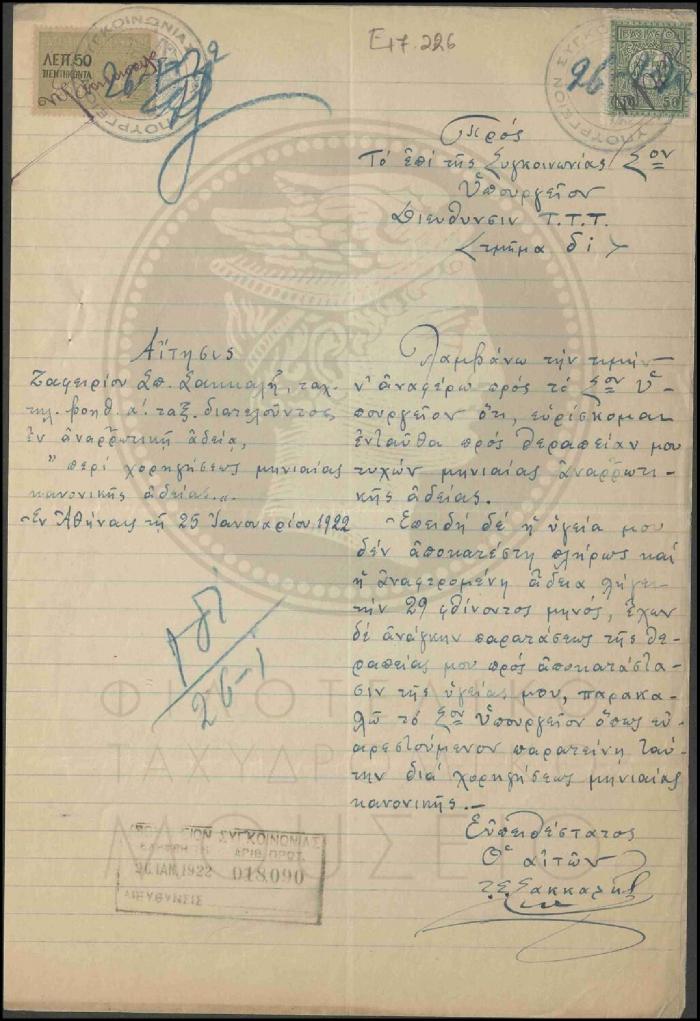 Ε17.226
ΛΕΠ.50
ΠΕΝΤΗΚΟΝΤΑ
ΥΠΟΥΡΓΕΙΟΝ ΣΥΓΚΟΙΝΩΝΙΑΣ
50
26
Πρός
Τό ἐπί τῆς Συγκοινωνίας Σον
Ὑπουργεῖον
Διεύθυνσιν Τ.Τ.Τ.
(τμῆμα δ')
Αἴτησις
Ζαφειρίου Σπ. Σακκαλῆ, ταχ.
τηλ. βοηθ. α' ταξ. διατελοῦντος
ἐν ἀναρρωτικῇ ἀδείᾳ,
"περί χορηγήσεως μηνιαίας
κανονικῆς ἀδείας..
Ἐν Ἀθήναις τῇ 25 Ἰανουαρίου 1922
Λαμβάνω τήν τιμήν
ν' ἀναφέρω πρός τό Σον Ὑ-
πουργεῖον ὅτι, εὑρίσκομαι
ἐνταῦθα πρός θεραπείαν μου
τυχών μηνιαίας ἀναρρωτι-
κῆς ἀδείας.
Ἐπειδή δέ ἡ ὑγεία μου
δέν ἀποκατέστη πλήρως καί
ἡ ἀναφερομένη ἄδεια λήγει
τήν 29 φθίνοντος μηνός, ἔχων
δέ ἀνάγκην παρατάσεως τῆς θε-
ραπείας μου πρός ἀποκατάστα-
σιν τῆς ὑγείας μου, παρακα-
λῶ τό Σον Ὑπουργεῖον ὅπως εὐ-
αρεστούμενον παρατείνῃ ταύ-
την διά χορηγήσεως μηνιαίας
κανονικῆς.—
Εὐπειθέστατος
Ὁ αἰτῶν
Ζ.Σ. Σακκαλῆς
26-1
ΥΠΟΥΡΓΕΙΟΝ ΣΥΓΚΟΙΝΩΝΙΑΣ
ΑΡΙΘ. ΠΡΩΤ.
26 ΙΑΝ. 1922 018090
ΔΙΕΥΘΥΝΣΙΣ
ΦΙΛΟΤΕΛΙΚΟ
ΤΑΧΥΔΡΟΜΙΚΟ
ΜΟΥΣΕΙΟ